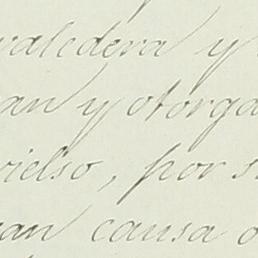 valedera y
an y otorga
vielso, por s
an causa o